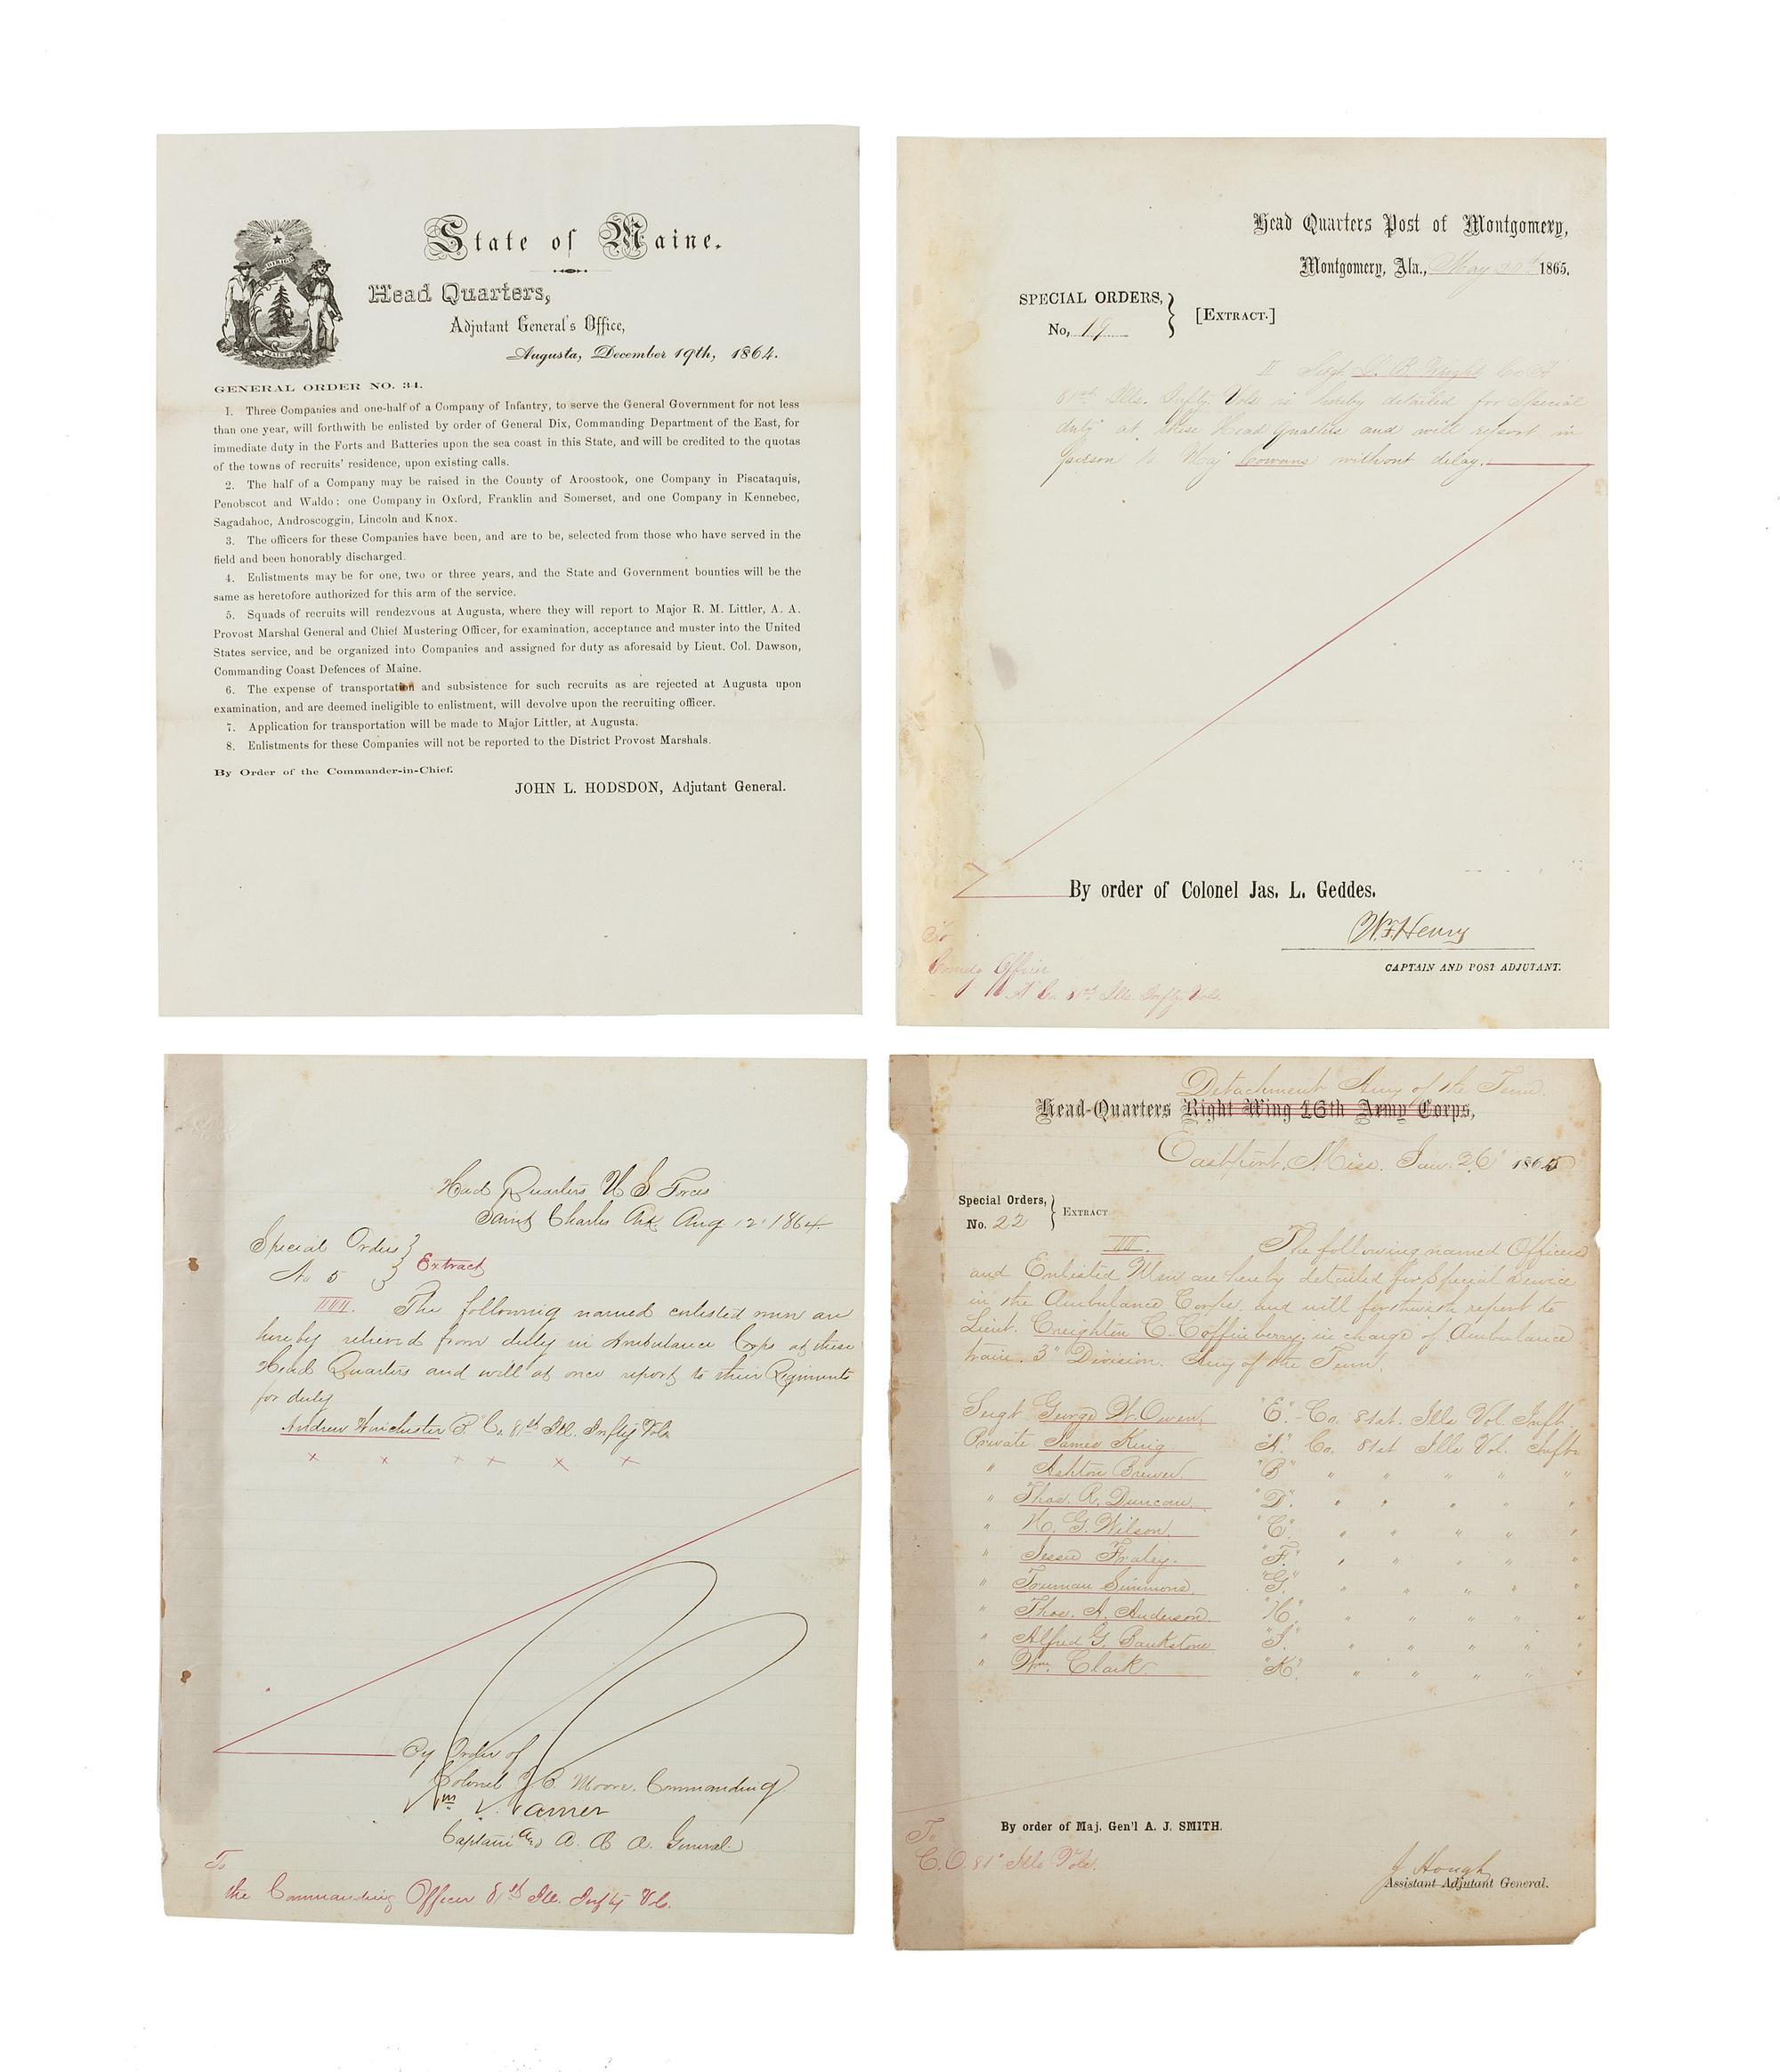 State of Maine.
Head Quarters,
Adjutant General's Office,
Augusta, December 19th, 1864.
DIRIGO
MAINE
GENERAL ORDER NO. 34.
1. Three Companies and one-half of a Company of Infantry, to serve the General Government for not less
than one year, will forthwith be enlisted by order of General Dix, Commanding Department of the East, for
immediate duty in the Forts and Batteries upon the sea coast in this State, and will be credited to the quotas
of the towns of recruits' residence, upon existing calls.
2. The half of a Company may be raised in the County of Aroostook, one Company in Piscataquis,
Penobscot and Waldo; one Company in Oxford, Franklin and Somerset, and one Company in Kennebec,
Sagadahoc, Androscoggin, Lincoln and Knox.
3. The officers for these Companies have been, and are to be, selected from those who have served in the
field and been honorably discharged.
4. Enlistments may be for one, two or three years, and the State and Government bounties will be the
same as heretofore authorized for this arm of the service.
5. Squads of recruits will rendezvous at Augusta, where they will report to Major R. M. Littler, A. A.
Provost Marshal General and Chief Mustering Officer, for examination, acceptance and muster into the United
States service, and be organized into Companies and assigned for duty as aforesaid by Lieut. Col. Dawson,
Commanding Coast Defences of Maine.
6. The expense of transportation and subsistence for such recruits as are rejected at Augusta upon
examination, and are deemed ineligible to enlistment, will devolve upon the recruiting officer.
7. Application for transportation will be made to Major Littler, at Augusta.
8. Enlistments for these Companies will not be reported to the District Provost Marshals.
By Order of the Commander-in-Chief.
JOHN L. HODSDON, Adjutant General.
Head Quarters Post of Montgomery,
Montgomery, Ala., May 1865.
SPECIAL ORDERS,
No, 19
[EXTRACT.]
II Sergt B. Wright Co "A"
81st Ills. Infty. Vols is hereby detailed for Special
duty at these Head Quarters and will report in
person to Maj Cowans without delay.
By order of Colonel Jas. L. Geddes.
W. F. Henry
CAPTAIN AND POST ADJUTANT.
To
Comdg Officer
"A" Co. 81st Ills. Infty. Vols.
Head Quarters U S Forces
Saint Charles Ark Aug 12" 1864
Special Orders
No 5
Extract
IIIII. The following named enlisted men are
hereby relieved from duty in Ambulance Corps at these
Head Quarters and will at once report to their Regiments
for duty
Andrew Winchester B. Co 81st Ill. Infty Vols
x x x x x x
By Order of
Colonel J. B. Moore. Commanding
Wm Warner
Captain and A. A. A. General
To
the Commanding Officer 81st Ill. Infty Vol.
Detachment Army of the Tenn.
Head-Quarters Right Wing 16th Army Corps,
Eastport, Miss. Jan. 26" 1865
Special Orders,
No. 22
EXTRACT
III. The following named Officers
and Enlisted Men are hereby detailed for Special Service
in the Ambulance Corps. and will forthwith report to
Lieut. Creighton C. Coffinberry, in charge of Ambulance
train. 3" Division. Army of the Tenn.
Sergt George W. Owen, "E". Co. 81st. Ills Vol. Inft.
Private James King "A" Co. 81st Ills Vol. Infts
" Ashton Brewer. "B" " " " " "
" Thos. R. Duncan. "D". " " " " "
" H. G. Wilson. "C" " " " " "
" Jesse Fraley. "F." " " " " "
" Truman Simmons. "G". " " " " "
" Thos. A. Anderson. "H". " " " " "
" Alfred G. Bankstone "I". " " " " "
" Wm. Clark "K" " " " " "
By order of Maj. Gen'l A. J. SMITH.
To
C. O. 81" Ills Vols.
J Hough
Assistant Adjutant General.